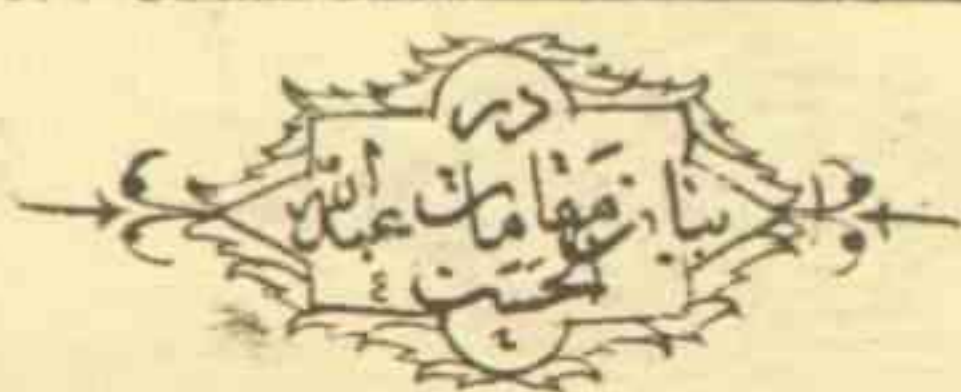 در
بیان مقامات عبدالله
الحسین ع